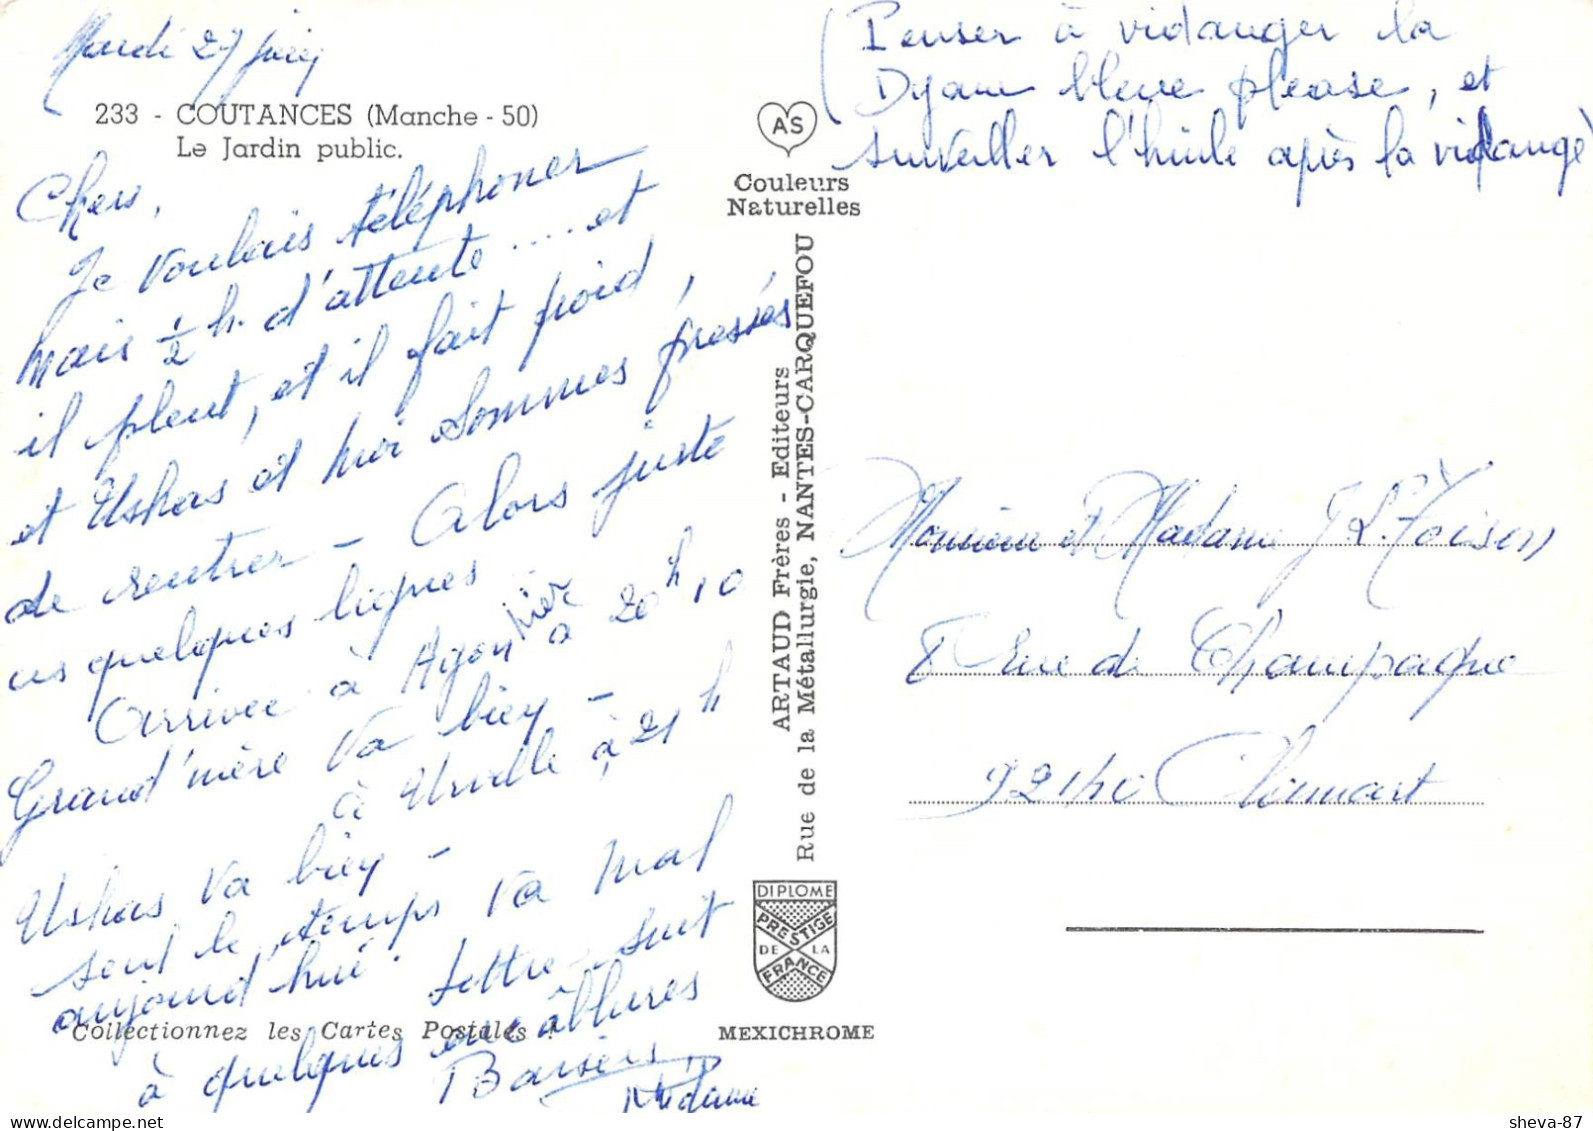 Mardi 27 juin
233 - COUTANCES (Manche - 50)
Le Jardin public.
Chers,
Je voulais téléphoner
mais ½ h. d'attente .... et
il pleut, et il fait froid,
et Ushas et moi sommes pressés
de rentrer - Alors juste
ces quelques lignes
Arrivée à Agon hier à 20h10
Grand'mère va bien -
à Urville à 21h
Ushas va bien -
seul le temps va mal
aujourd'hui. Lettre suit
à quelques encâblures
Baisers,
Collectionnez les Cartes Postales !
(Penser à vidanger la
Dyane bleue please, et
surveiller l'huile après la vidange)
AS
Couleurs
Naturelles
ARTAUD Frères - Editeurs
Rue de la Métallurgie, NANTES-CARQUEFOU
DIPLOME
PRESTIGE
DE LA
FRANCE
MEXICHROME
Monsieur et Madame J L. Voisin
8 rue de Champagne
92140 Clamart
sheva-87